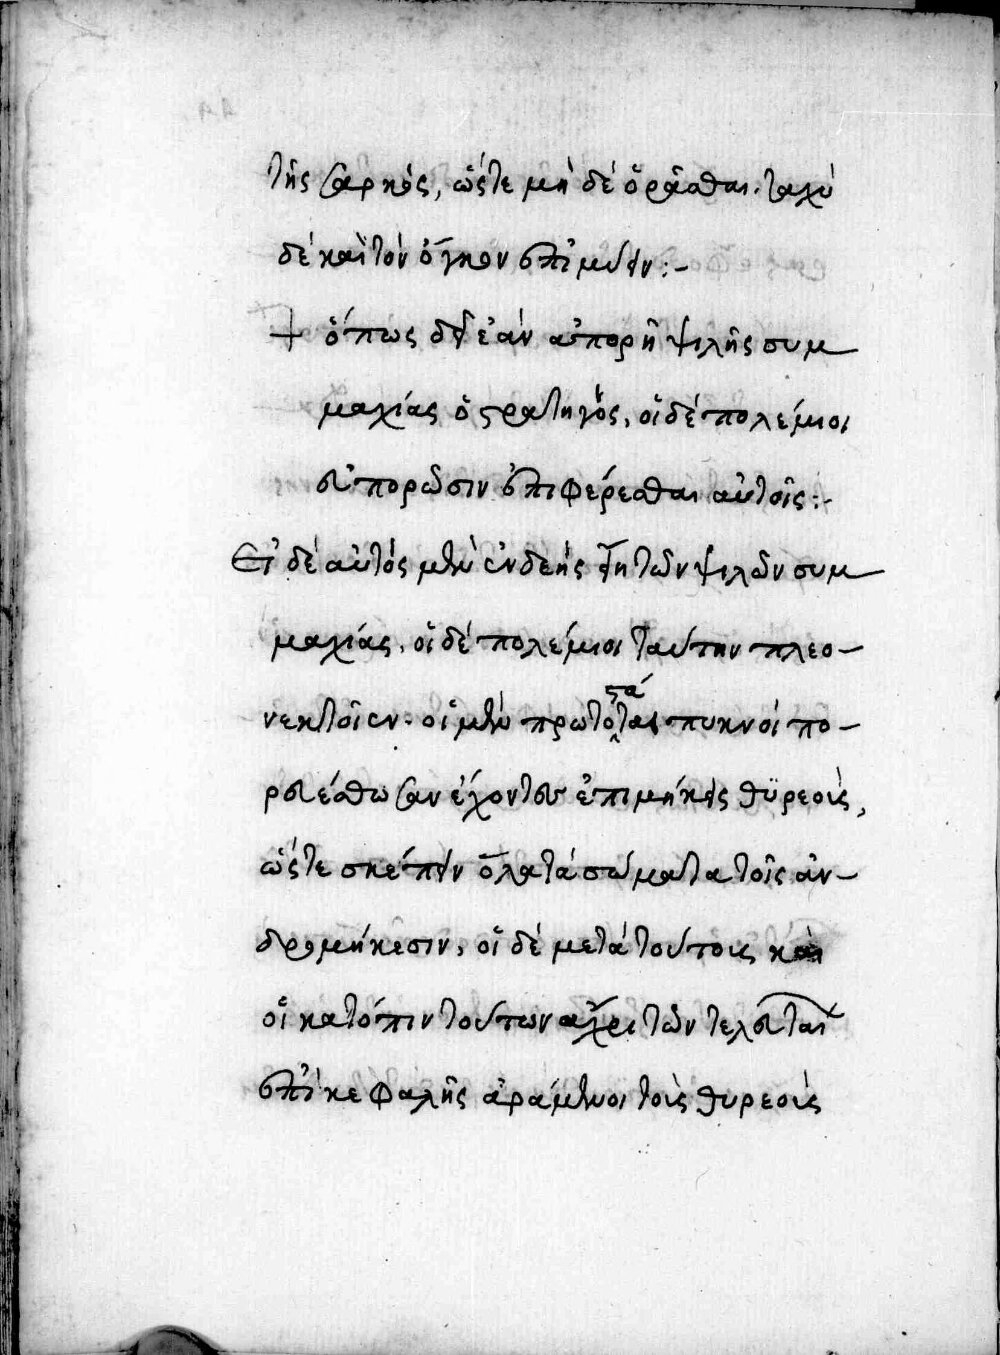 τῆς σαρκὸς, ὥστε μὴ δὲ ὁρᾶσθαι. ταχὺ
δὲ καὶ τὸν ὄγκον ἐπιμύειν :-
+ ὅπως δεῖ ἐὰν ἀπορῆ ψιλῆς συμ
μαχίας ὁ στρατηγὸς, οἱ δὲ πολέμιοι
εὐπορῶσιν ἐπιφέρεσθαι αὐτοῖς :-
Εἰ δὲ αὐτὸς μὲν ἐνδεὴς εἴη τῶν ψιλῶν συμ
μαχίας, οἱ δὲ πολέμιοι ταύτην πλεο-
νεκτοῖεν. οἱ μὲν πρωτοστάται πυκνοὶ πο-
ρευέσθωσαν ἔχοντες ἐπιμήκεις θϋρεοὺς,
ὥστε σκέπειν ὅλα τὰ σώματα τοῖς ἀν-
δρομήκεσιν, οἱ δὲ μετὰ τούτους καὶ
οἱ κατόπιν τούτων ἄχρι τῶν τελευταί
ἐπὶ κεφαλῆς ἀράμενοι τοὺς θυρεοὺς